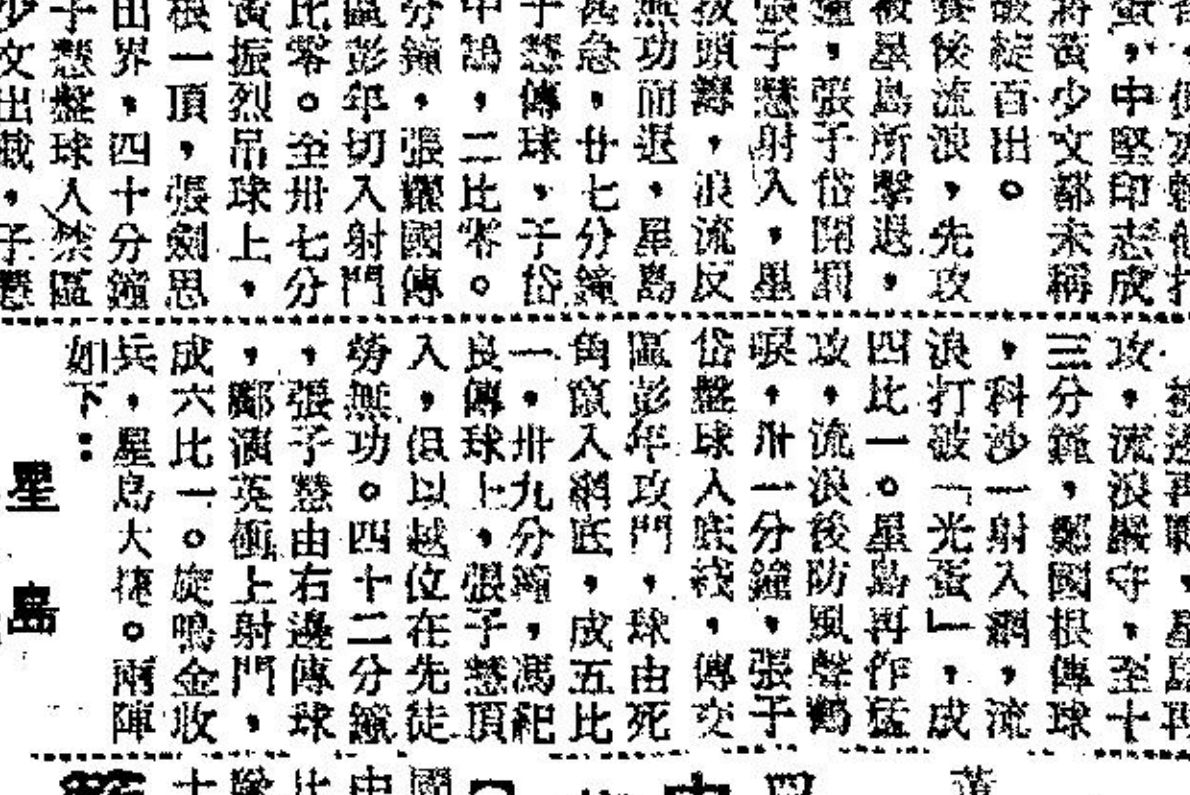 打
蛋,中堅印志成
將黃少文都未稱
破綻百出。
賽後流浪,先攻
被星島所擊退,
,張子岱開罰
張子慧射入,星
拔頭籌,浪流反
無功而退,星島
甚急,廿七分鐘
子慧傳球,子岱
中鵠,二比零。
分鐘,張耀國傳
區彭年切入射門
比零。至卅七分
黃振烈吊球上,
根一頂,張劍思
出界,四十分鐘
子慧盤球入禁區
少文出截,子慧
攻,流浪嚴守,至十
三分鐘,鄭國根傳球
,科沙一射入網,流
浪打破「光蛋」,成
四比一。星島再作猛
攻,流浪後防風聲鶴
唳,卅一分鐘,張子
岱盤球入底線,傳交
區彭年攻門,球由死
角竄入網底,成五比
一,卅九分鐘,馮紀
良傳球上,張子慧頂
入,但以越位在先徒
勞無功。四十二分鐘
,張子慧由右邊傳球
,鄺演英衝上射門,
成六比一。旋鳴金收
兵,星島大捷。兩陣
如下:
星島